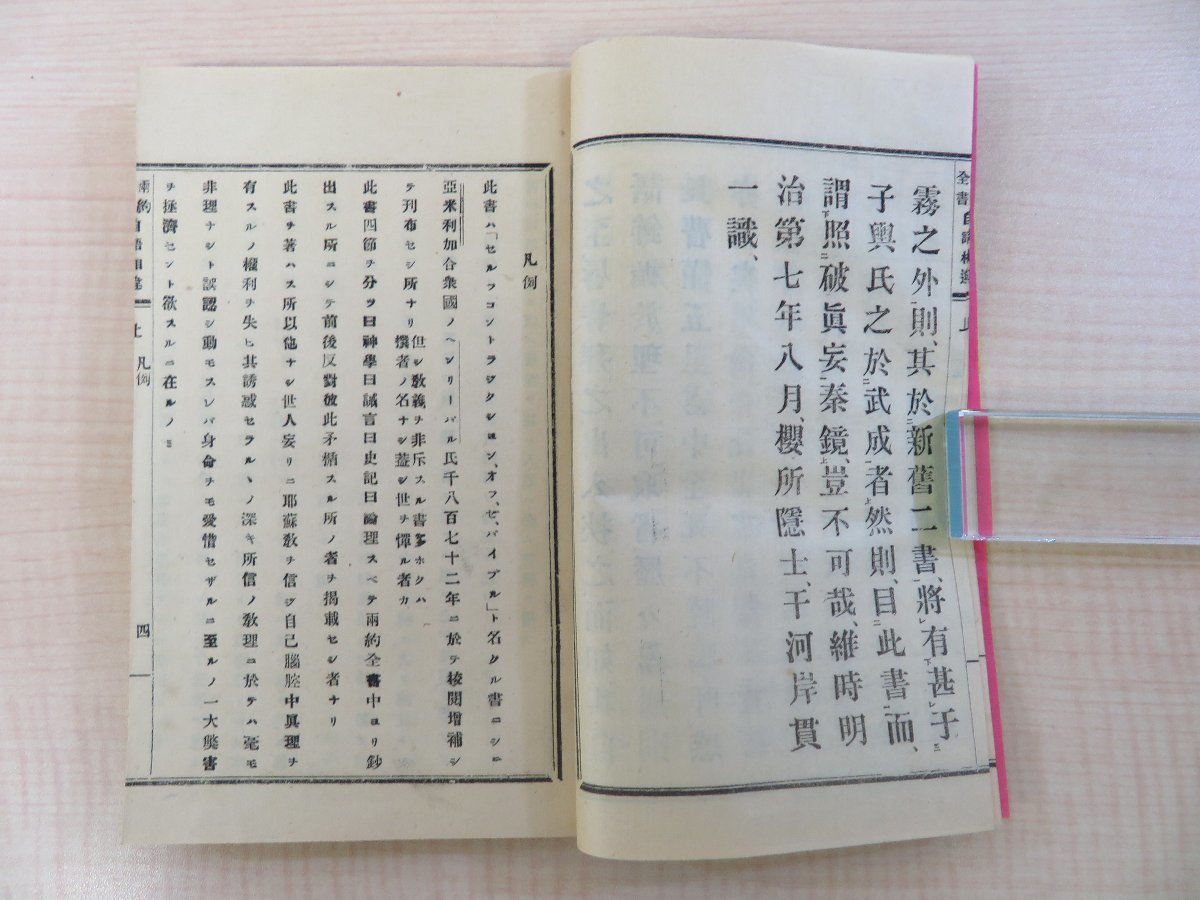 霧之外則、其於新舊二書、將有甚于
子輿氏之於武成者然則、目此書而、
謂照破眞妄秦鏡、豈不可哉、維時明
治第七年八月、櫻所隱士、干河岸貫
一識、
凡例
此書ハ「セルフコントラヂクシヨン、オフ、ゼ、バイブル」ト名クル書ニシテ
亞米利加合衆國ノヘンリーバル氏千八百七十二年ニ於テ校閲增補シ
テ刊布セシ所ナリ 但シ敎義チ非斥スル書多ホクハ
撰者ノ名ナシ蓋シ世チ憚ル者カ
此書四節チ分ツ曰神學曰誡言曰史記曰論理スベテ兩約全書中ヨリ鈔
出スル所ニシテ前後反對彼此矛楯スル所ノ者チ揭載セシ者ナリ
此書チ著ハス所以他ナシ世人妄リニ耶蘇敎チ信ジ自己腦腔中眞理チ
有スルノ權利チ失ヒ其誘惑セラルヽノ深キ所信ノ敎理ニ於テハ毫モ
非理ナシト誤認シ動モスレバ身命チモ愛惜セザルニ至ルノ一大弊害
チ拯濟セント欲スルニ在ルノミ
上 凡例
四